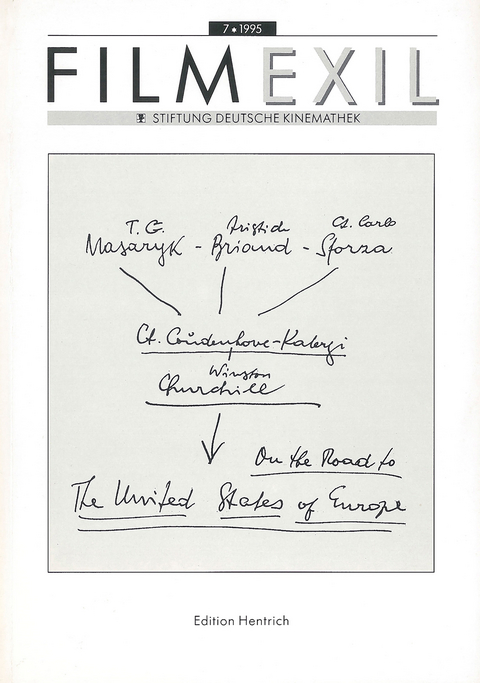 7 • 1995
FILMEXIL
STIFTUNG DEUTSCHE KINEMATHEK
T. G. Aristide Ct. Carlo
Masaryk - Briand - Sforza
Ct. Coudenhove-Kalergi
Winston
Churchill
On the Road to
The United States of Europe
Edition Hentrich